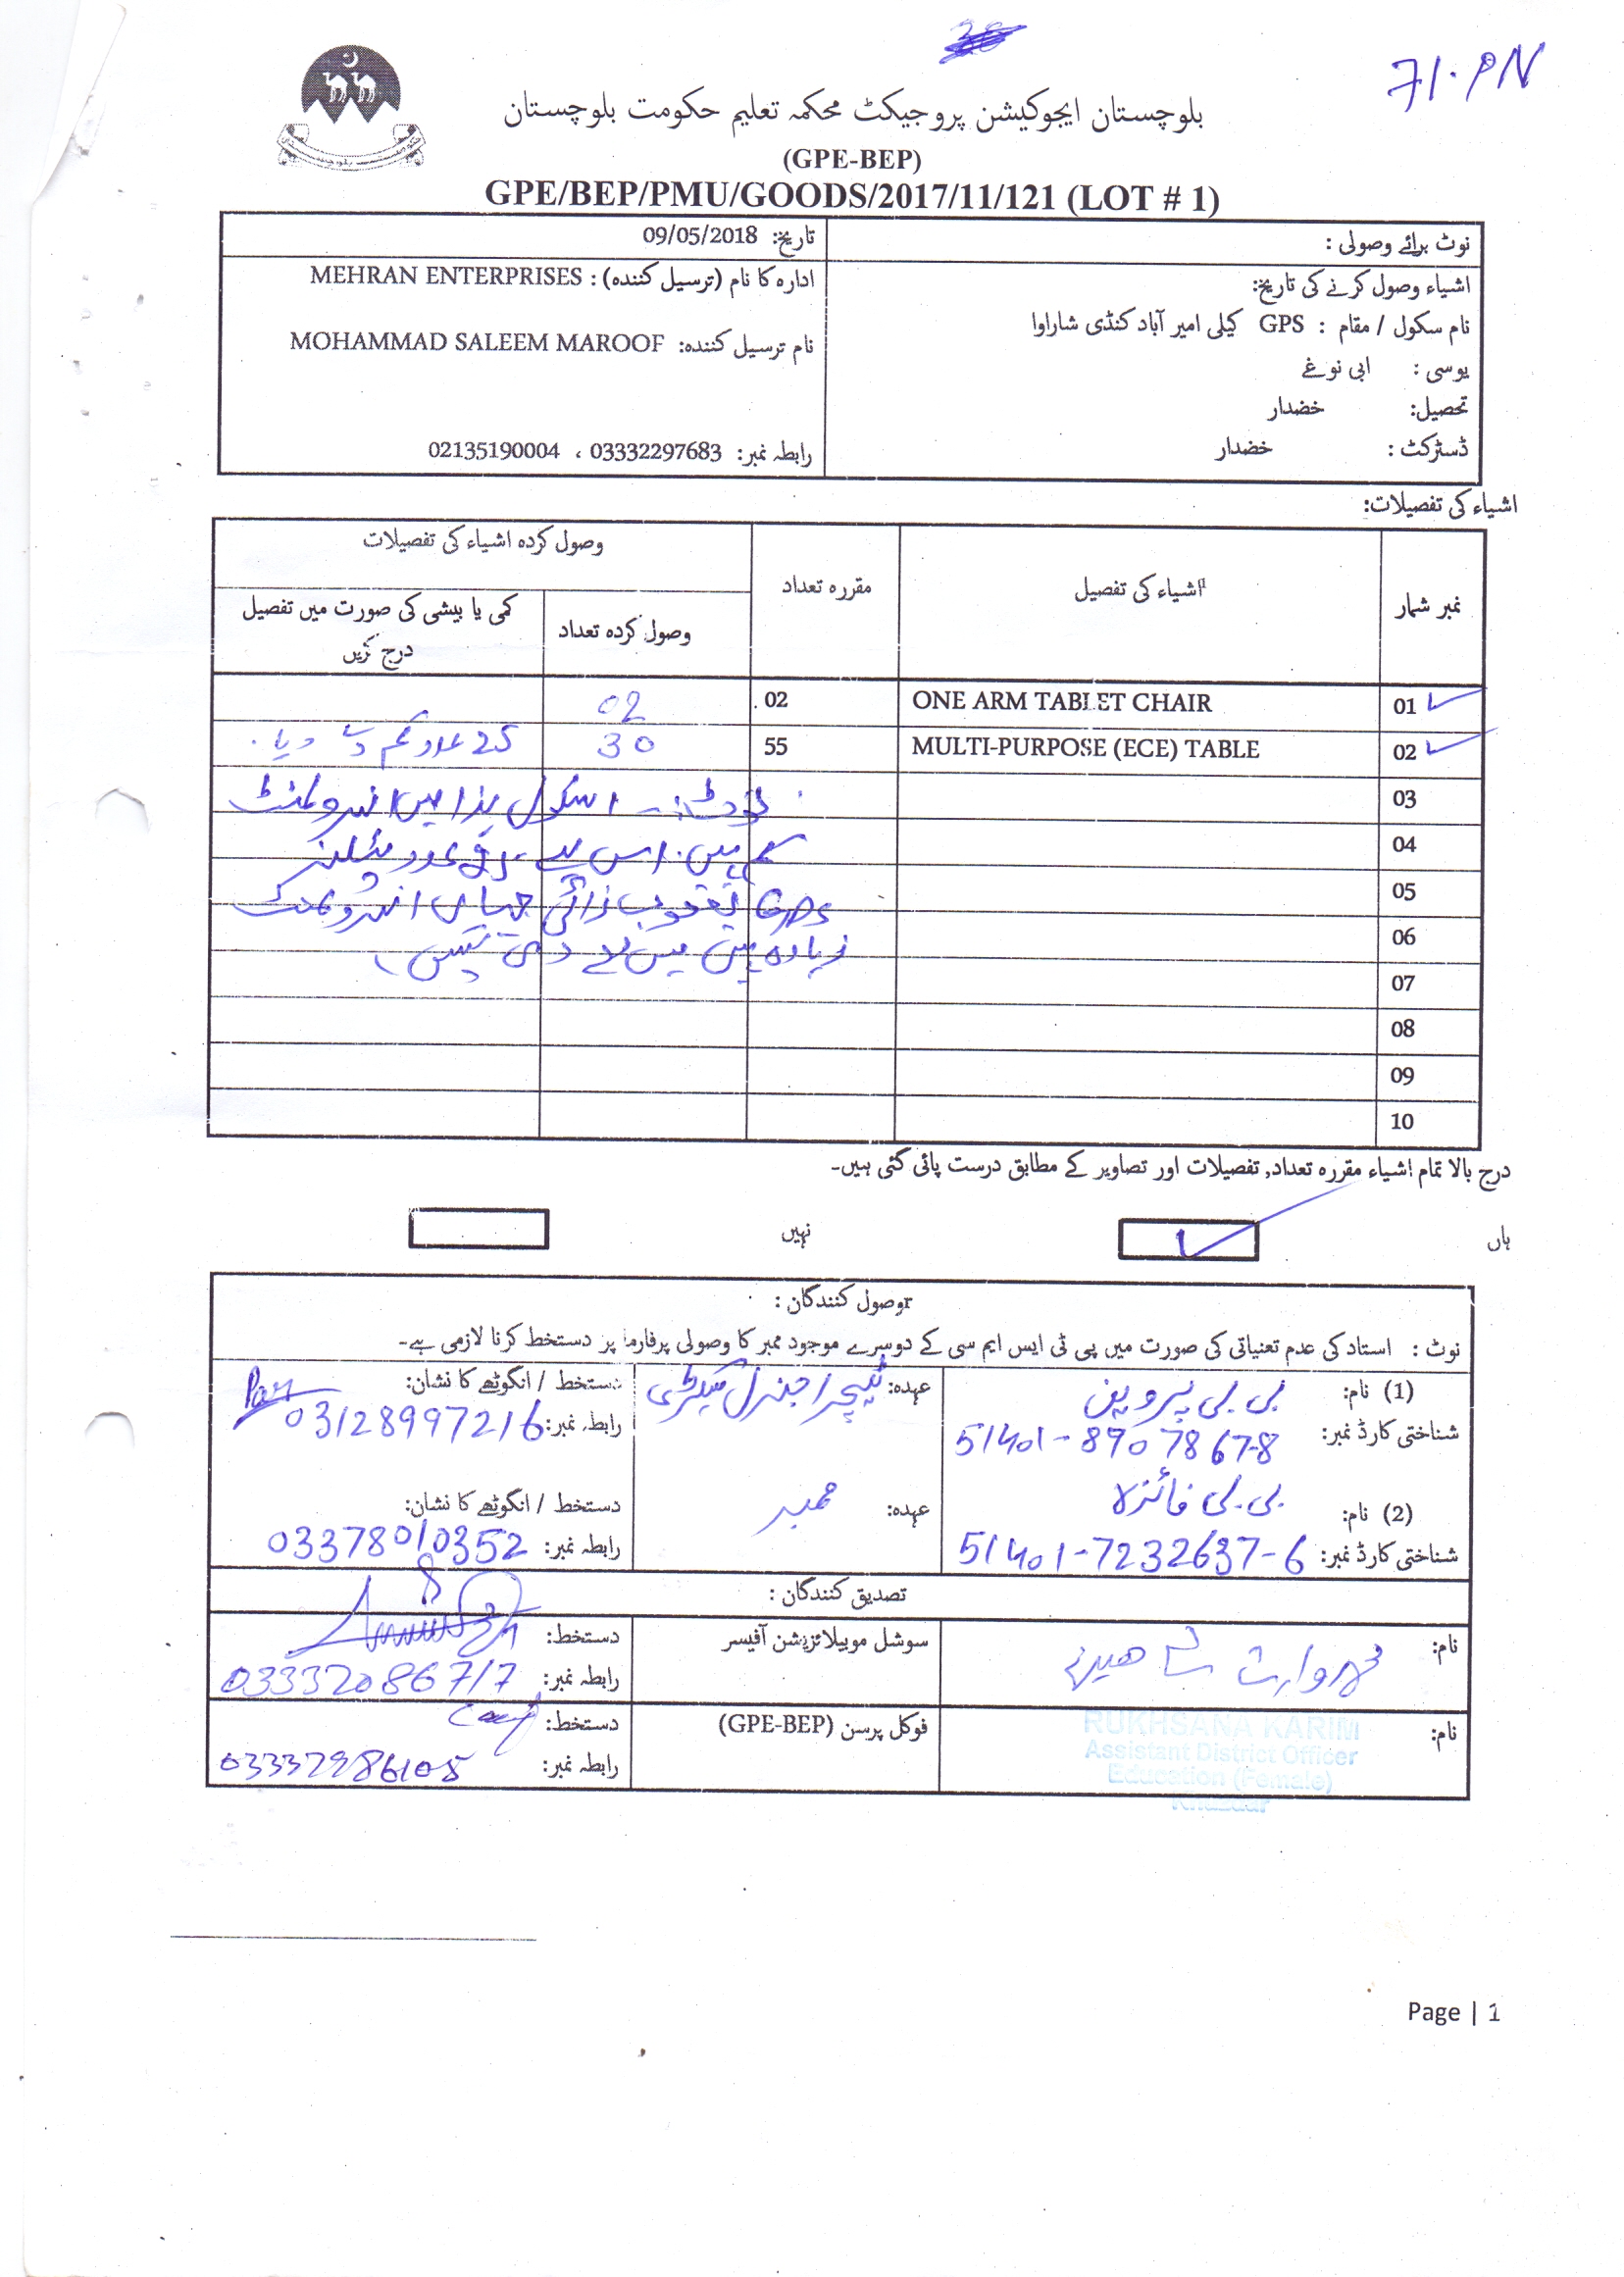 71. PN
بلوچستان ایجوکیشن پروجیکٹ محکمہ تعلیم حکومت بلوچستان
(GPE-BEP)
GPE/BEP/PMU/GOODS/2017/11/121 (LOT # 1)
نوٹ برائے وصولی :
تاریخ: 09/05/2018
اشیاء وصول کرنے کی تاریخ:
ادارہ کا نام (ترسیل کنندہ) : MEHRAN ENTERPRISES
نام سکول / مقام : GPS کیلی امیر آباد کنڈی شاراوا
نام ترسیل کنندہ: MOHAMMAD SALEEM MAROOF
یوسی : ابی نوغے
تحصیل: خضدار
ڈسٹرکٹ : خضدار
رابطہ نمبر: 03332297683 ، 02135190004
اشیاء کی تفصیلات:
نمبر شمار
اشیاء کی تفصیل
مقررہ تعداد
وصول کردہ اشیاء کی تفصیلات
وصول کردہ تعداد
کمی یا بیشی کی صورت میں تفصیل
درج کریں
01 ONE ARM TABLET CHAIR 02 02
02 MULTI-PURPOSE (ECE) TABLE 55 30 25 عدد کم دیا
03 نوٹ:- اسکول ہذا میں انرولمنٹ
04 کم ہیں۔ اس لیے عدد
05 GPS یعقوب زائی جہاں انرولمنٹ
06 زیادہ ہیں میں
07
08
09
10
درج بالا تمام اشیاء مقررہ تعداد, تفصیلات اور تصاویر کے مطابق درست پائی گئی ہیں۔
ہاں
نہیں
وصول کنندگان :
نوٹ : استاد کی عدم تعنیاتی کی صورت میں پی ٹی ایس ایم سی کے دوسرے موجود ممبر کا وصولی پرفارما پر دستخط کرنا لازمی ہے۔
(1) نام: بی بی پروین
عہدہ: ٹیچر / جنرل سیکرٹری
دستخط / انگوٹھے کا نشان:
شناختی کارڈ نمبر: 51401-8907867-8
رابطہ نمبر: 03128997216
(2) نام: بی بی فائزہ
عہدہ: ممبر
دستخط / انگوٹھے کا نشان:
شناختی کارڈ نمبر: 51401-7232637-6
رابطہ نمبر: 03378010352
تصدیق کنندگان :
نام: محمد وارث شاھین
سوشل موبیلائزیشن آفیسر
دستخط:
رابطہ نمبر: 03332086717
نام:
RUKHSANA KARIM
Assistant District Officer
Education (Female)
Khuzdar
فوکل پرسن (GPE-BEP)
دستخط:
رابطہ نمبر: 03337986105
Page | 1